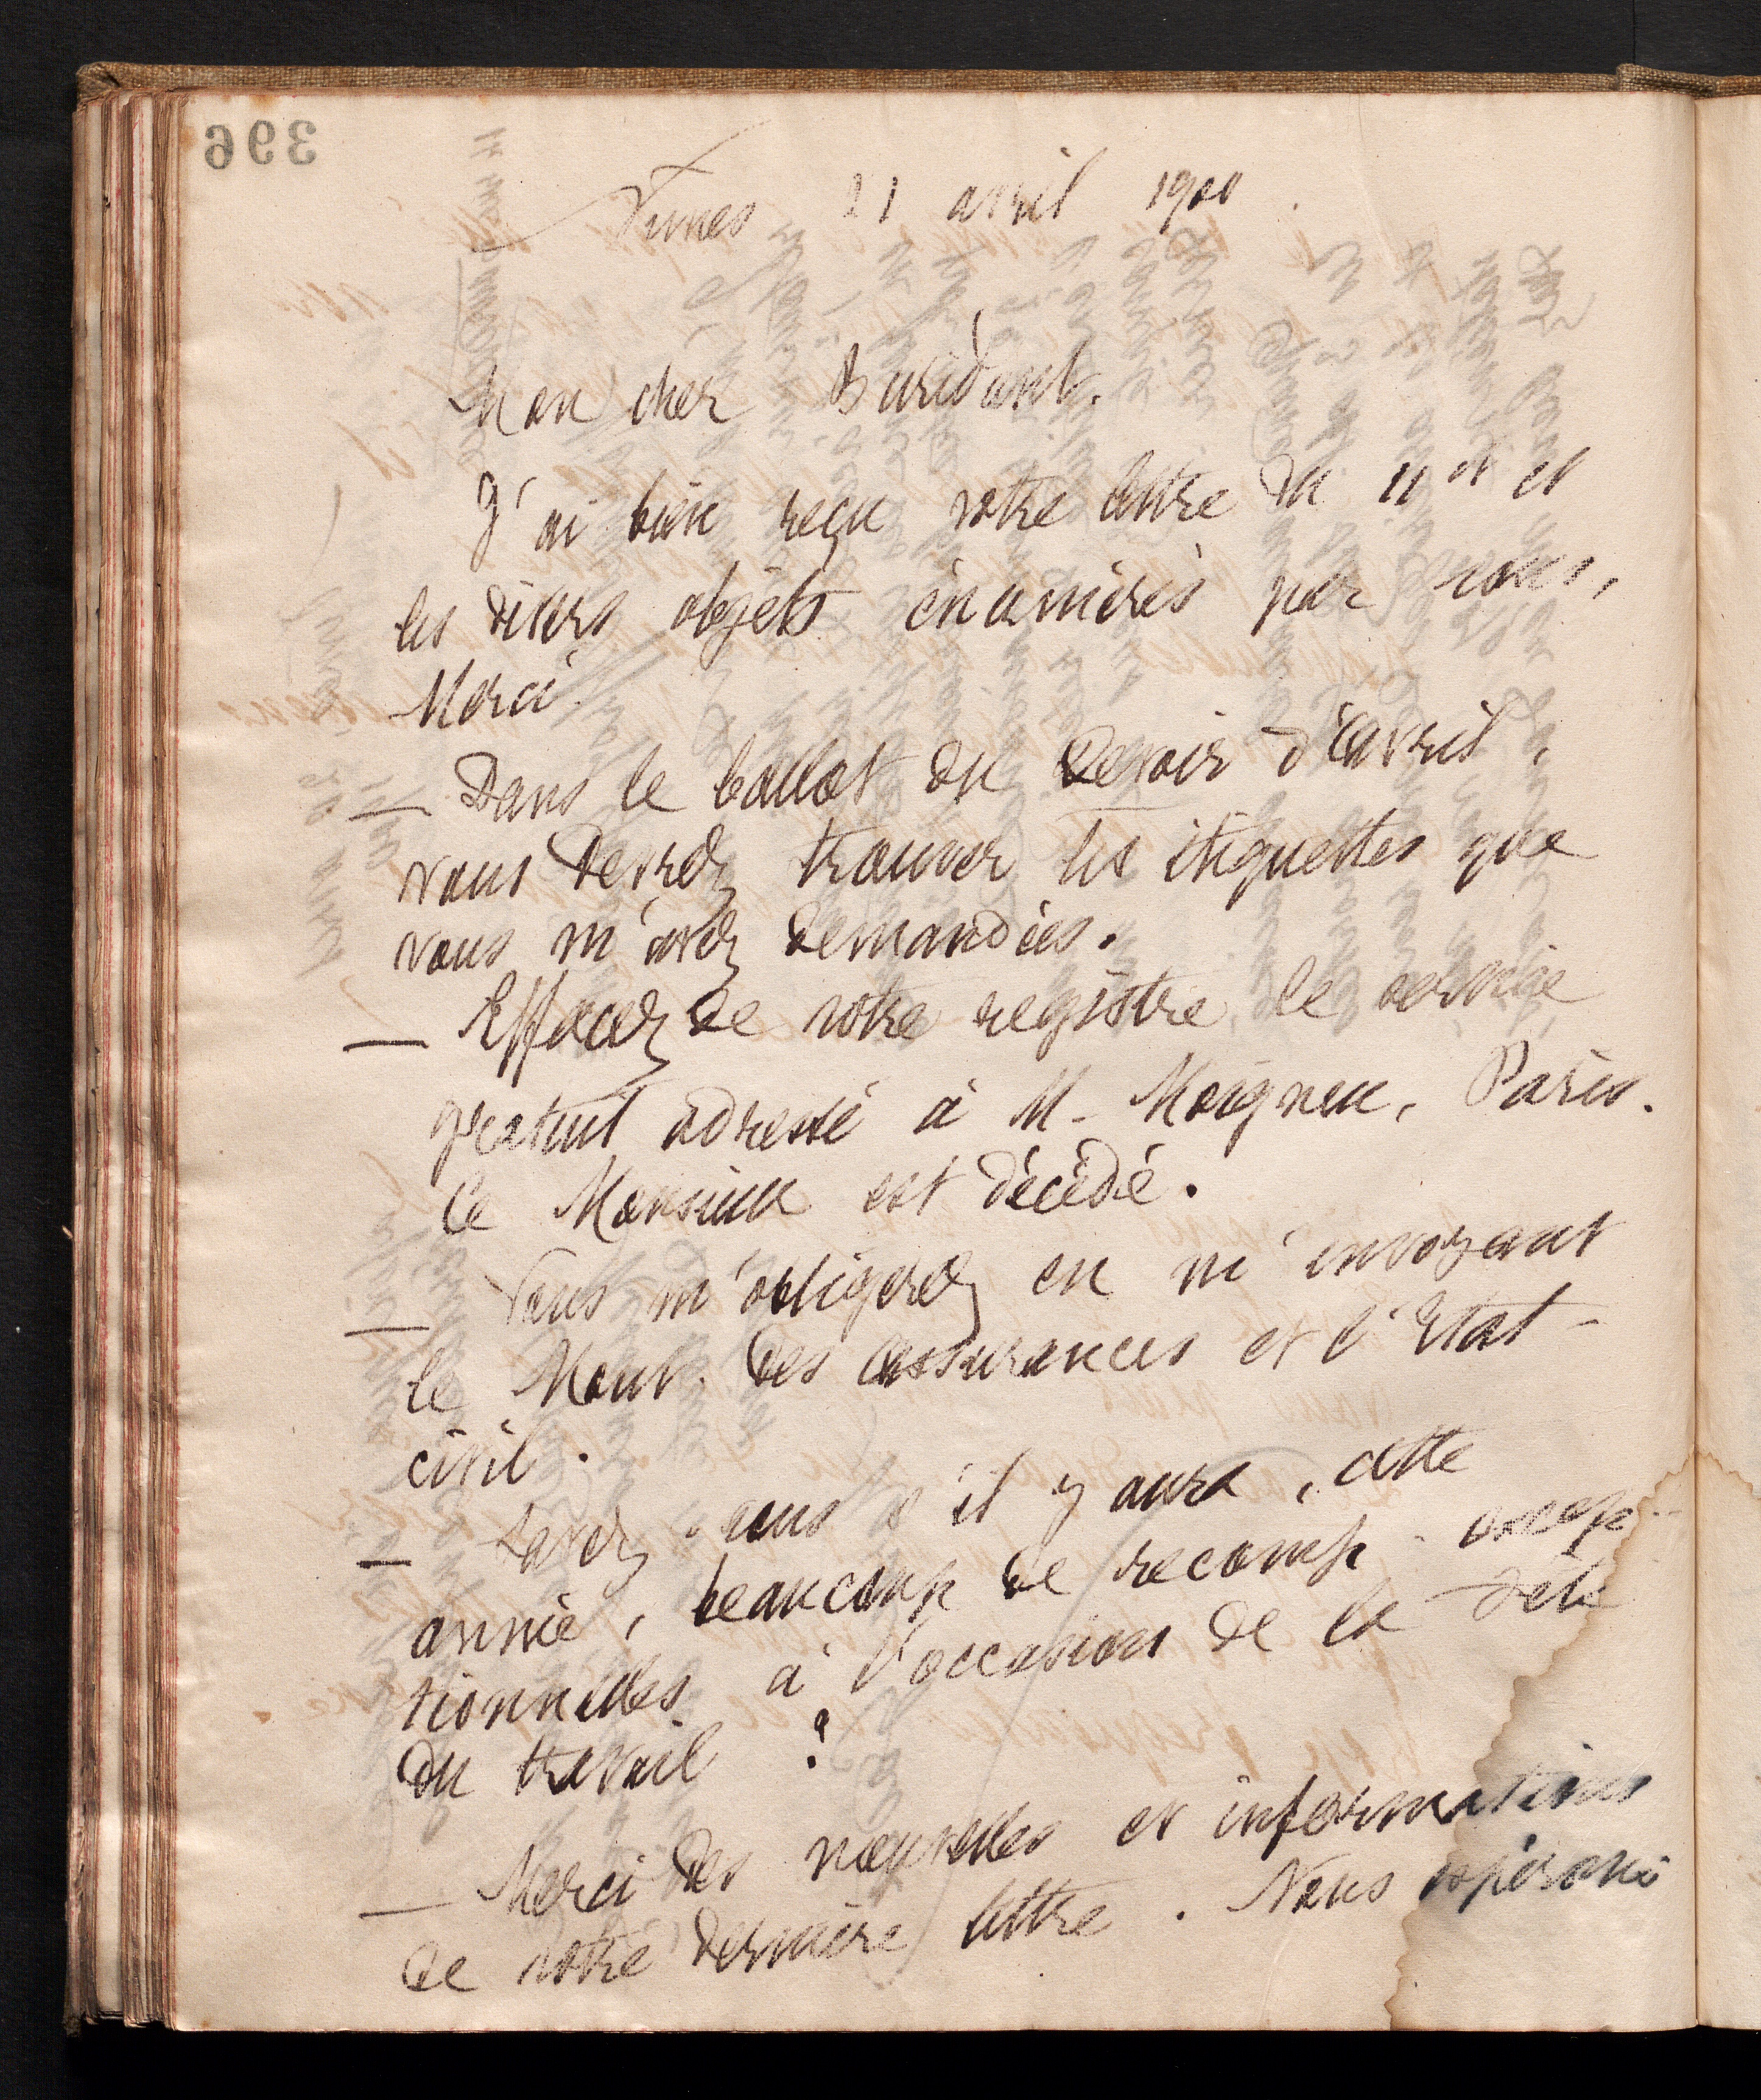 396
Nimes 21 avril 1900.
Mon cher Buridant.
J'ai bien reçu votre lettre du 11 ct et
les divers objets énumérés par vous,
Merci.
— Dans le ballot du Devoir d'avril,
vous devrez trouver les étiquettes que
vous m'avez demandées.
— Effacez de votre registre le service
gratuit adressé à M. Moigneu, Paris.
Ce Monsieur est décédé.
— Vous m'obligerez en m'envoyant
le Monit. des assurances et l'Etat-
civil.
— Savez-vous s'il y aura, cette
année, beaucoup de récomp. excep-
tionnelles à l'occasion de la fête
du travail ?
— Merci des nouvelles et informations
de votre dernière lettre. Nous espérons